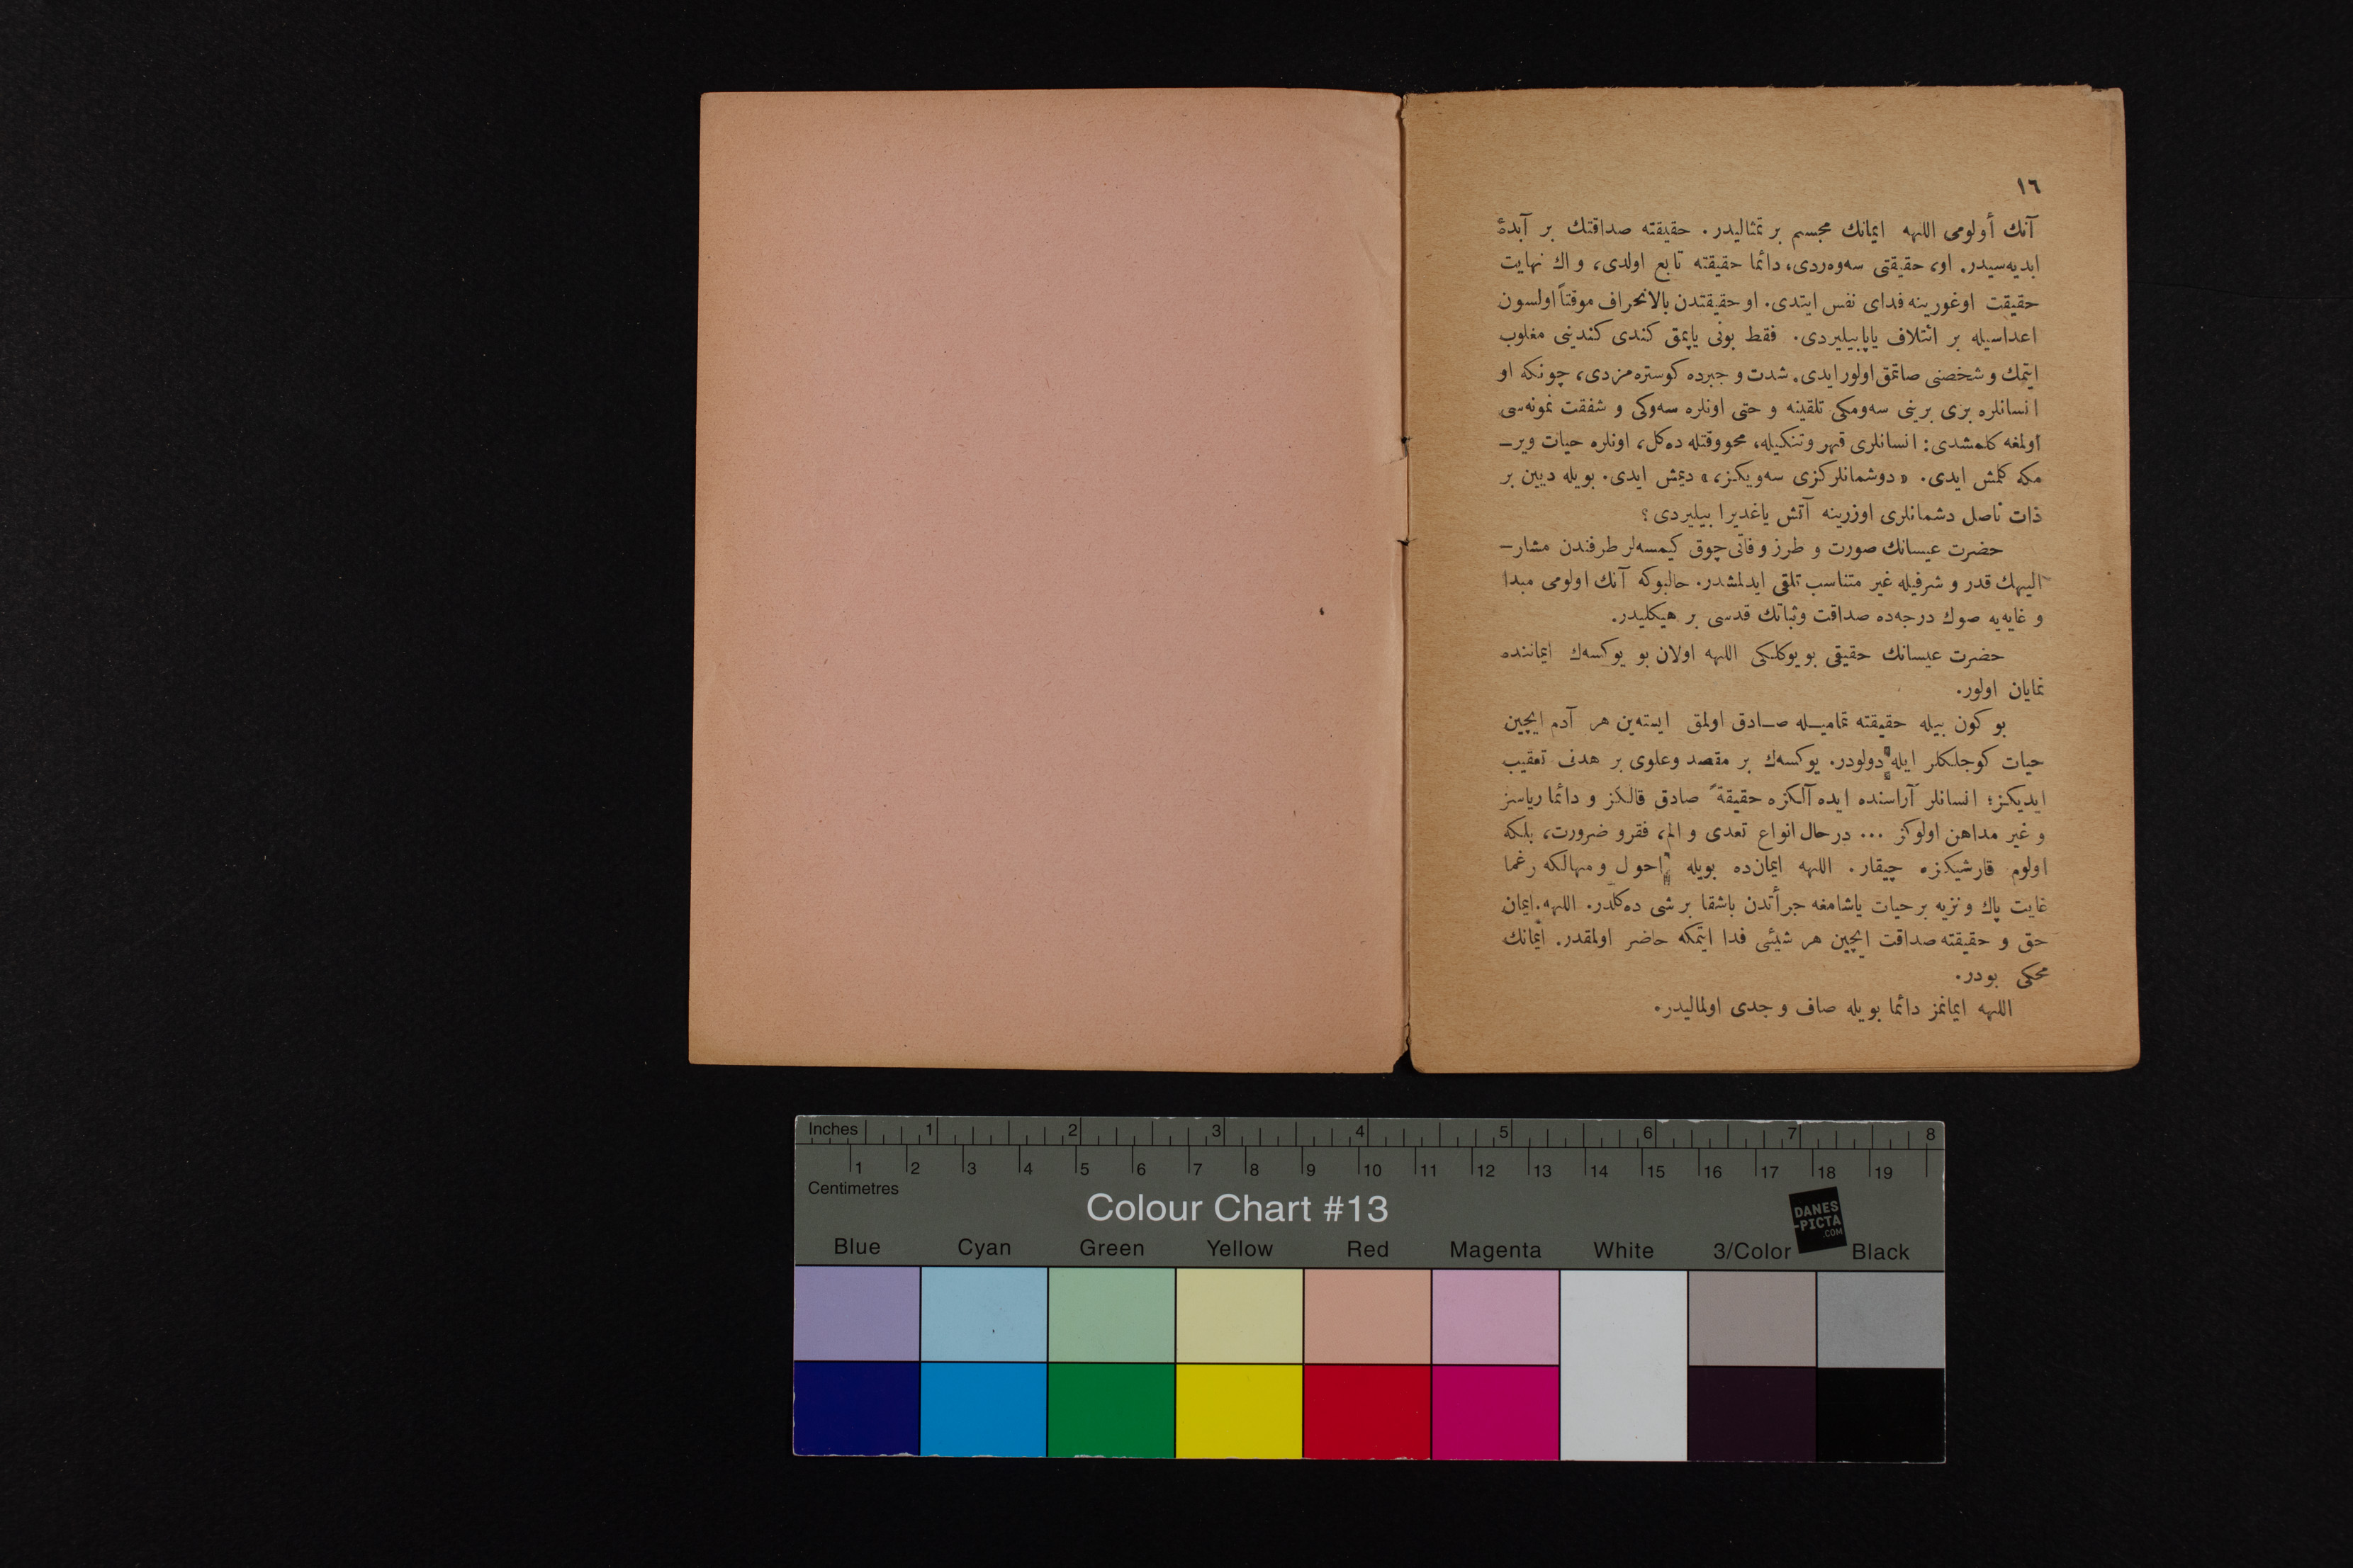 ١٦
آنك أولومی اللهه ایمانك مجسم بر تمثالیدر. حقیقته صداقتك بر آبدهٔ
ابدیه‌سیدر. او، حقیقتی سه‌وه‌ردی، دائما حقیقته تابع اولدی، و اك نهایت
حقیقت اوغورینه فدای نفس ایتدی. او حقیقتدن بالانحراف موقتاً اولسون
اعداسیله بر ائتلاف یاپابیلیردی. فقط بونی یاپمق كندی كندینی مغلوب
ایتمك و شخصنی صاتمق اولور ایدی. شدت و جبرده كوستره‌مزدی، چونكه او
انسانلره بری برینی سه‌ومكی تلقینه و حتی اونلره سه‌وكی و شفقت نمونه‌سی
اولمغه كلمشدی: انسانلری قهر و تنكیله، محو و قتله ده‌كل، اونلره حیات ویر–
مكه كلمش ایدی. «دوشمانلركزی سه‌ویكز،» دیمش ایدی. بویله دیین بر
ذات ناصل دشمانلری اوزرینه آتش یاغدیرا بیلیردی؟
حضرت عیسانك صورت و طرز وفاتی چوق كیمسه‌لر طرفندن مشار–
الیهك قدر و شرفیله غیر متناسب تلقی ایدلمشدر. حالبوكه آنك اولومی مبدا
و غایه‌یه صوك درجه‌ده صداقت وثباتك قدسی بر هیكلیدر.
حضرت عیسانك حقیقی بویوكلكی اللهه اولان بو یوكسه‌ك ایماننده
نمایان اولور.
بو كون بیله حقیقته تمامیـله صـادق اولمق ایسته‌ین هر آدم ایچین
حیات كوجلكلر ایله دولودر. یوكسه‌ك بر مقصد وعلوی بر هدف تعقیب
ایدیكز؛ انسانلر آراسنده ایده آلكزه حقیقةً صادق قالكز و دائما ریاسز
و غیر مداهن اولوكز ... درحال انواع تعدی و الم، فقرو ضرورت، بلكه
اولوم قارشیكزه چیقار. اللهه ایمان‌ده بویله احول ومهالكه رغما
غایت پاك ونزیه بر حیات یاشامغه جرأتدن باشقا بر شی ده‌كلدر. اللهه ایمان
حق و حقیقته صداقت ایچین هر شیئی فدا ایتمكه حاضر اولمقدر. ایمانك
محكی بودر.
اللهه ایمانمز دائما بویله صاف و جدی اولمالیدر.
Inches 1 2 3 4 5 6 7 8
1 2 3 4 5 6 7 8 9 10 11 12 13 14 15 16 17 18 19
Centimetres
Colour Chart #13
DANES
-PICTA
.COM
Blue Cyan Green Yellow Red Magenta White 3/Color Black